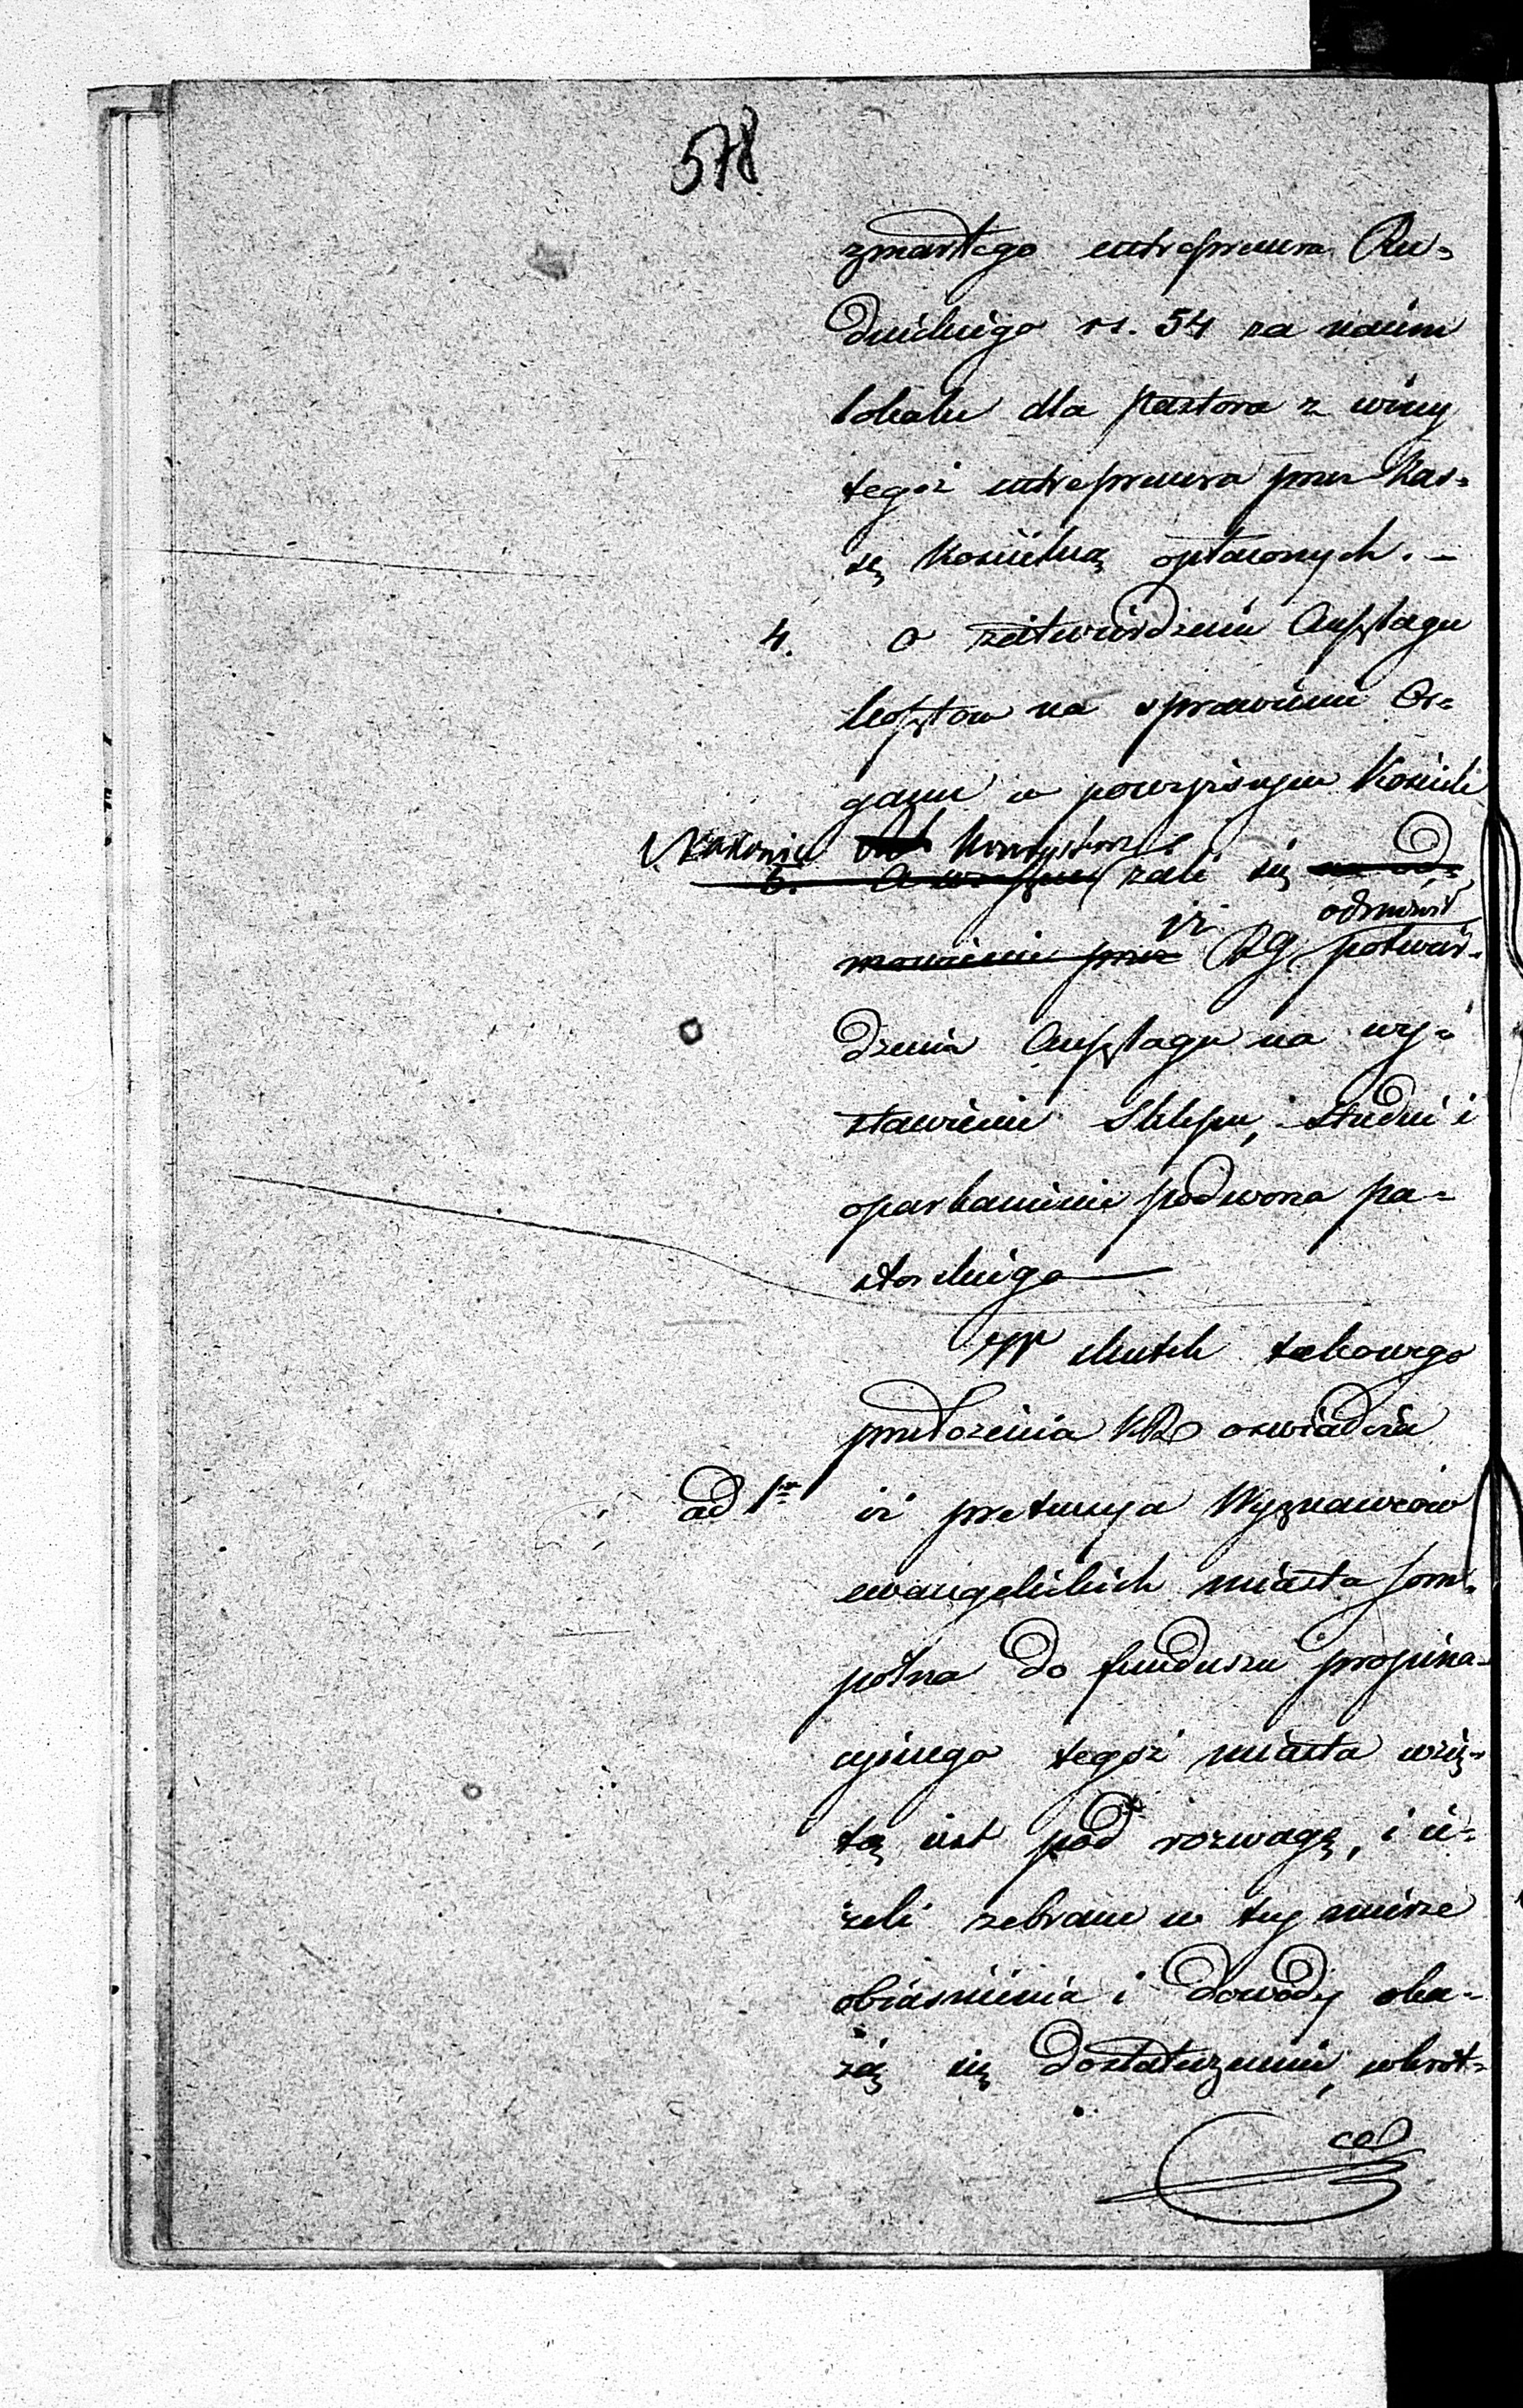 578
zmarłego entreprenera Ru-
dnickiego rs. 54 za naiem
lokalu dla pastora z winy
tegoż entreprenera przez Kas-
sę Kościelną opłaconych. —
4. O zatwierdzenie Anszlagu
kosztow na sprawienie Or-
ganu w powyższym Kościele
Nakoniec Konsystorz
5. żali się
iż odmówił
mowienie przez KRg. potwier-
dzenia Anszlagu na wy-
stawienie Sklepu, studni i
oparkanienie podworza pa-
storskiego —
W skutek takowego
przełożenia KR oświadcza
ad 1m iż pretensya Wyznawców
ewangelickich miasta Som-
polna do funduszu propina-
cyinego tegoż miasta wzię-
tą iest pod rozwagę, i ie-
żeli zebrane w tey mierze
obiaśnienia i dowody oka-
żą się dostatecznemi, wkrót-
ce